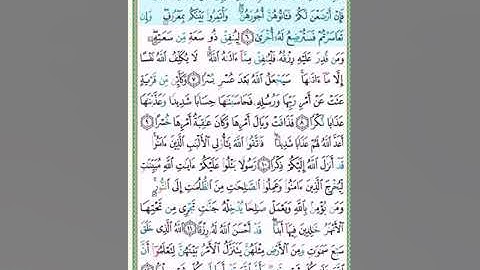 فَإِنْ أَرْضَعْنَ لَكُمْ فَـَٔاتُوهُنَّ أُجُورَهُنَّ ۖ وَأْتَمِرُوا۟ بَيْنَكُم بِمَعْرُوفٍ ۖ وَإِن
تَعَاسَرْتُمْ فَسَتُرْضِعُ لَهُۥٓ أُخْرَىٰ ﴿٦﴾ لِيُنفِقْ ذُو سَعَةٍ مِّن سَعَتِهِۦ ۖ
وَمَن قُدِرَ عَلَيْهِ رِزْقُهُۥ فَلْيُنفِقْ مِمَّآ ءَاتَىٰهُ ٱللَّهُ ۚ لَا يُكَلِّفُ ٱللَّهُ نَفْسًا
إِلَّا مَآ ءَاتَىٰهَا ۚ سَيَجْعَلُ ٱللَّهُ بَعْدَ عُسْرٍ يُسْرًا ﴿٧﴾ وَكَأَيِّن مِّن قَرْيَةٍ
عَتَتْ عَنْ أَمْرِ رَبِّهَا وَرُسُلِهِۦ فَحَاسَبْنَٰهَا حِسَابًا شَدِيدًا وَعَذَّبْنَٰهَا
عَذَابًا نُّكْرًا ﴿٨﴾ فَذَاقَتْ وَبَالَ أَمْرِهَا وَكَانَ عَٰقِبَةُ أَمْرِهَا خُسْرًا ﴿٩﴾
أَعَدَّ ٱللَّهُ لَهُمْ عَذَابًا شَدِيدًا ۖ فَٱتَّقُوا۟ ٱللَّهَ يَٰٓأُو۟لِى ٱلْأَلْبَٰبِ ٱلَّذِينَ ءَامَنُوا۟ ۚ
قَدْ أَنزَلَ ٱللَّهُ إِلَيْكُمْ ذِكْرًا ﴿١٠﴾ رَّسُولًا يَتْلُوا۟ عَلَيْكُمْ ءَايَٰتِ ٱللَّهِ مُبَيِّنَٰتٍ
لِّيُخْرِجَ ٱلَّذِينَ ءَامَنُوا۟ وَعَمِلُوا۟ ٱلصَّٰلِحَٰتِ مِنَ ٱلظُّلُمَٰتِ إِلَى ٱلنُّورِ ۚ
وَمَن يُؤْمِنۢ بِٱللَّهِ وَيَعْمَلْ صَٰلِحًا يُدْخِلْهُ جَنَّٰتٍ تَجْرِى مِن تَحْتِهَا
ٱلْأَنْهَٰرُ خَٰلِدِينَ فِيهَآ أَبَدًا ۖ قَدْ أَحْسَنَ ٱللَّهُ لَهُۥ رِزْقًا ﴿١١﴾ ٱللَّهُ ٱلَّذِى خَلَقَ
سَبْعَ سَمَٰوَٰتٍ وَمِنَ ٱلْأَرْضِ مِثْلَهُنَّ يَتَنَزَّلُ ٱلْأَمْرُ بَيْنَهُنَّ لِتَعْلَمُوٓا۟ أَنَّ